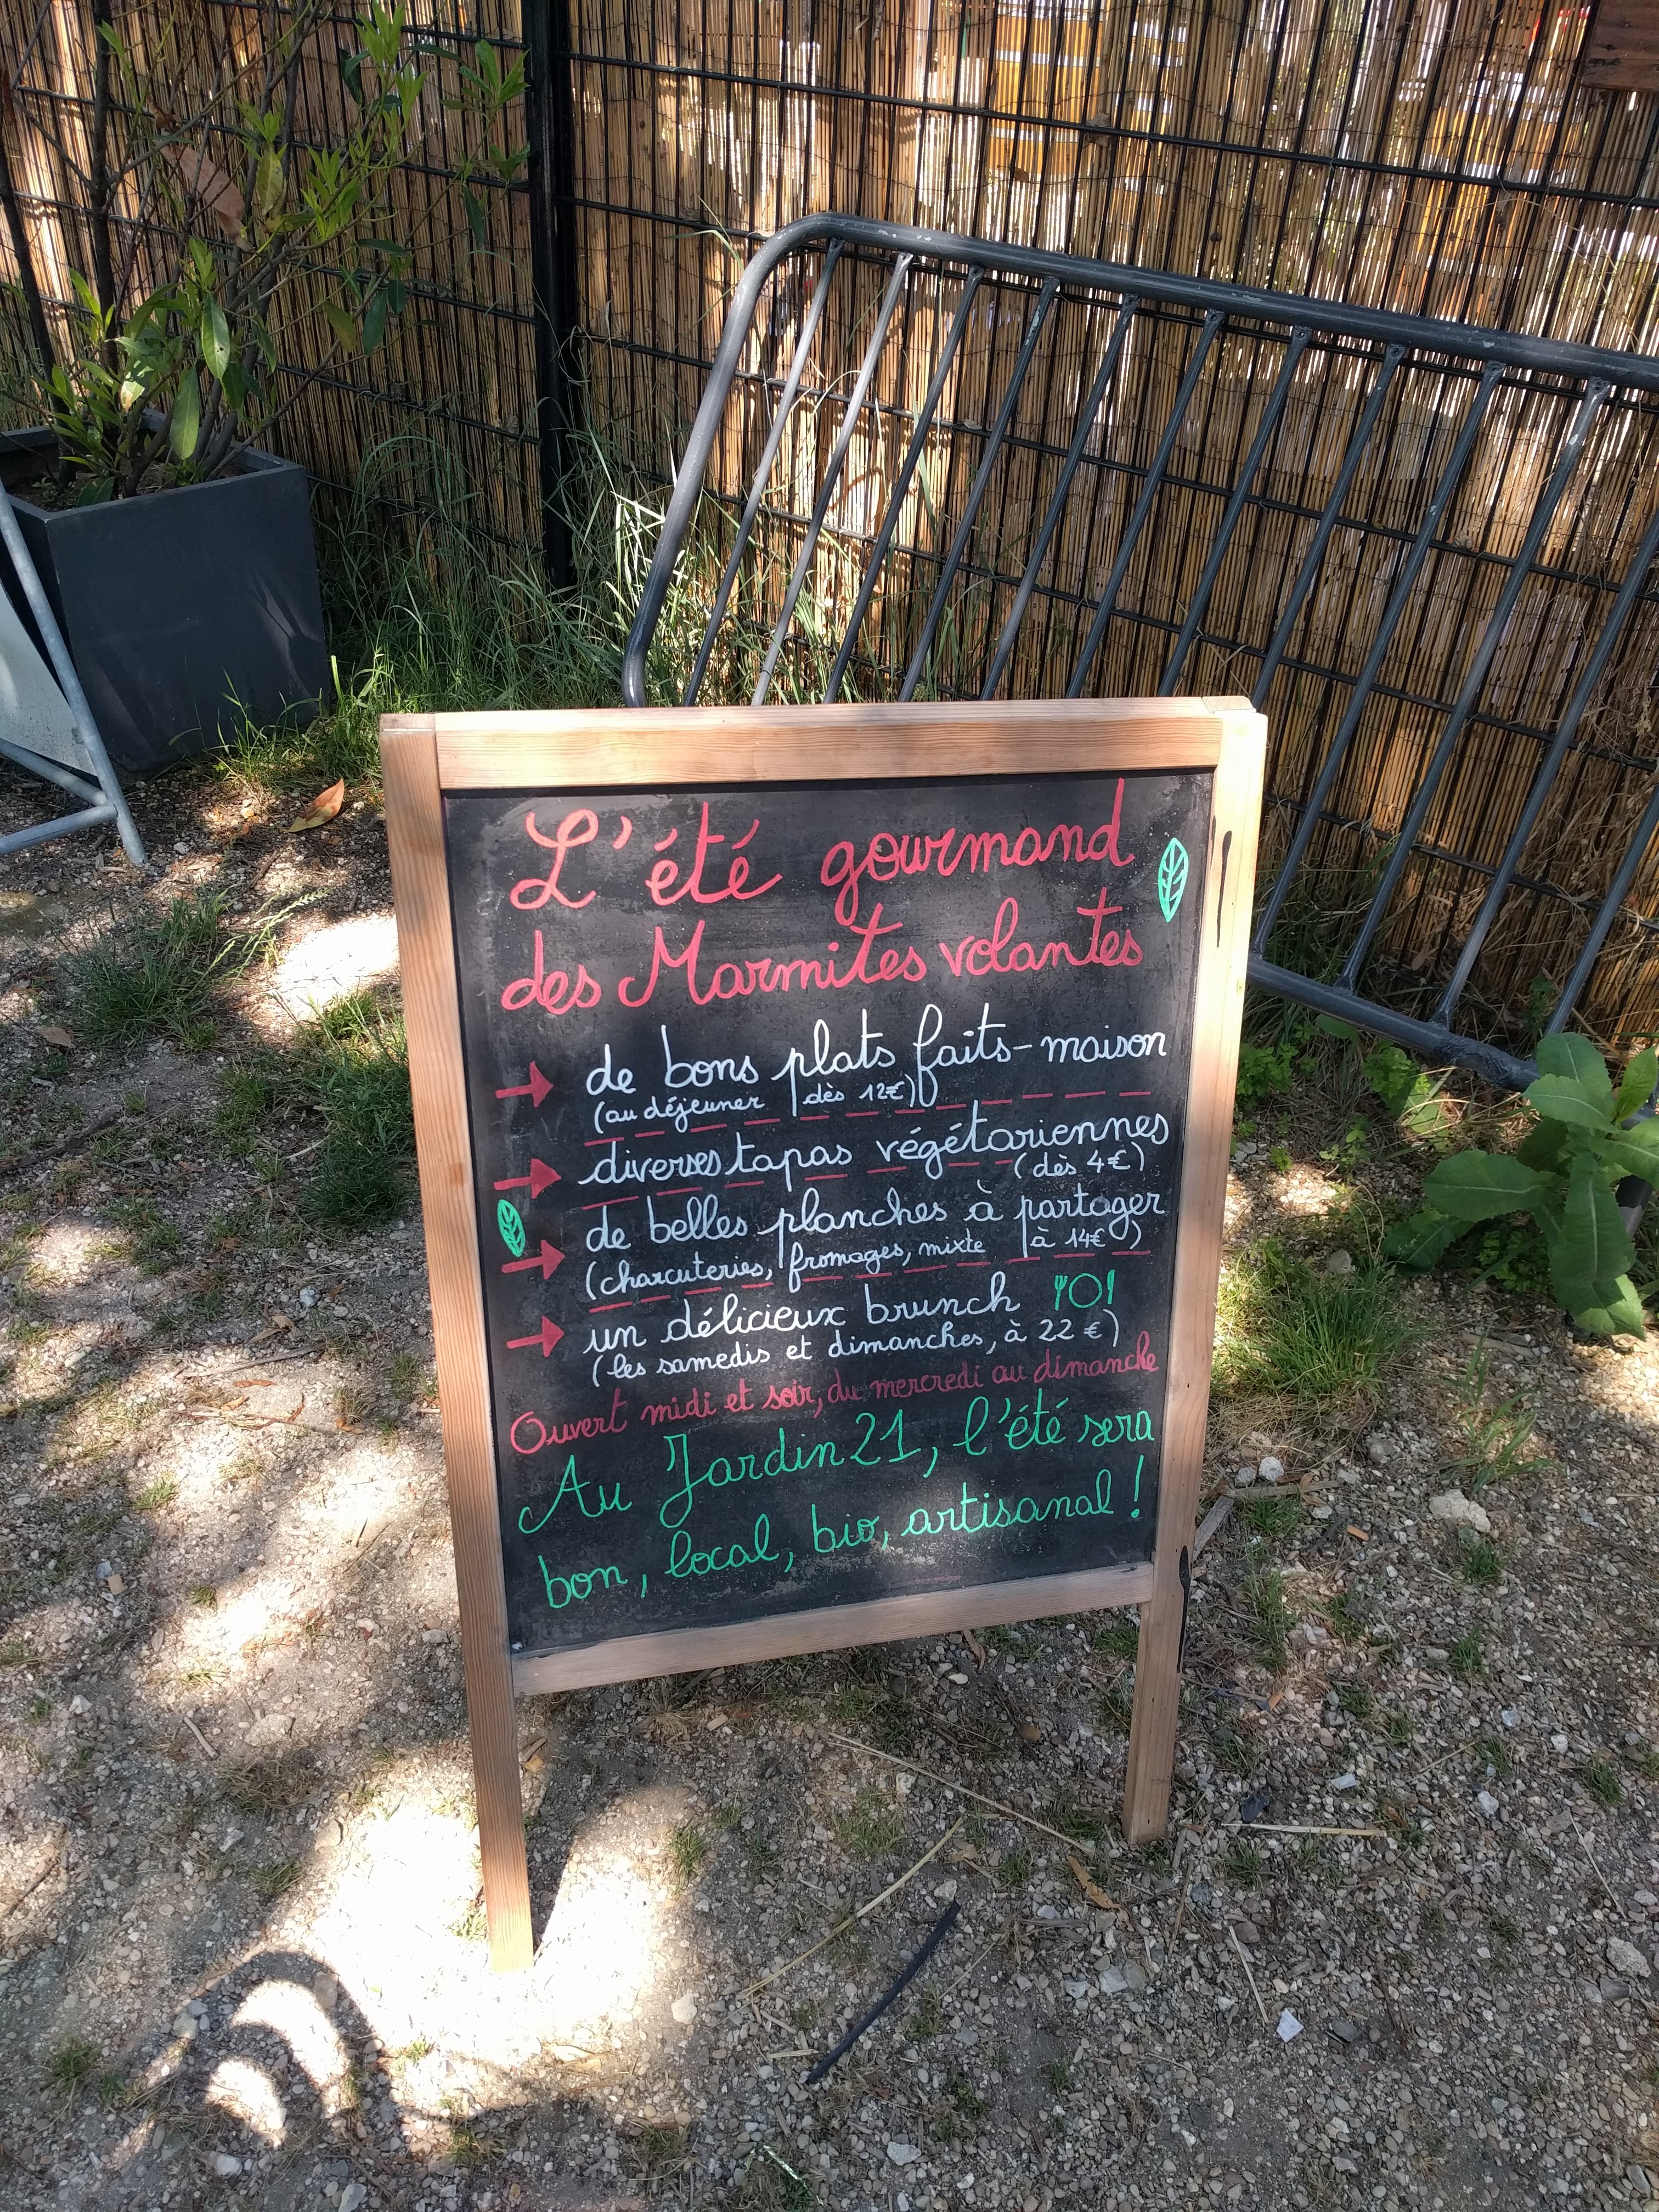 L'été gourmand
des Marmites volantes
→ de bons plats faits-maison
(au déjeuner dès 12€)
→ diverses tapas végétariennes
(dès 4€)
→ de belles planches à partager
(charcuteries, fromages, mixte à 14€)
→ un délicieux brunch
(les samedis et dimanches, à 22 €)
Ouvert midi et soir, du mercredi au dimanche
Au Jardin21, l'été sera
bon, local, bio, artisanal !